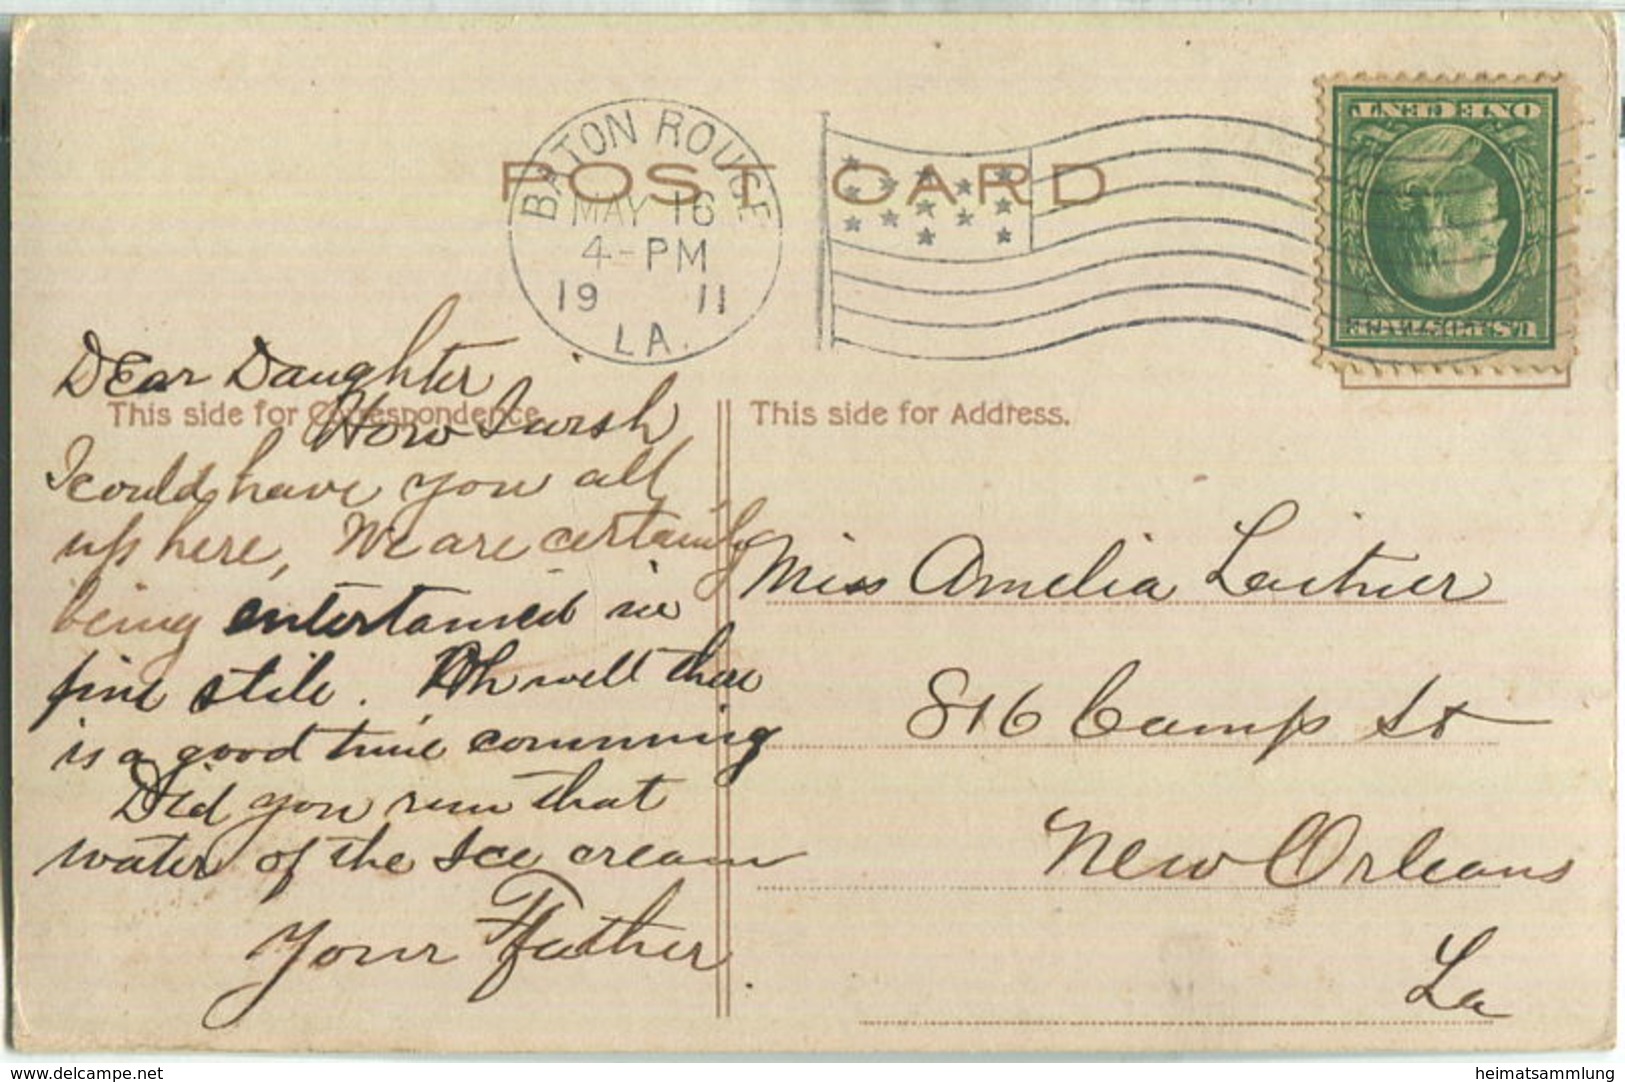 POST CARD
BATON ROUGE
MAY 16
4-PM
1911
LA.
ONE CENT
U.S. POSTAGE
This side for Correspondence.
This side for Address.
Dear Daughter
How I wish
I could have you all
up here, We are certainly
being entertained in
fine stile. Oh well there
is a good time comming
Did you run that
water of the Ice cream
Your Father.
Miss Amelia Leitner
816 Camp St
New Orleans
La
www.delcampe.net
heimatsammlung